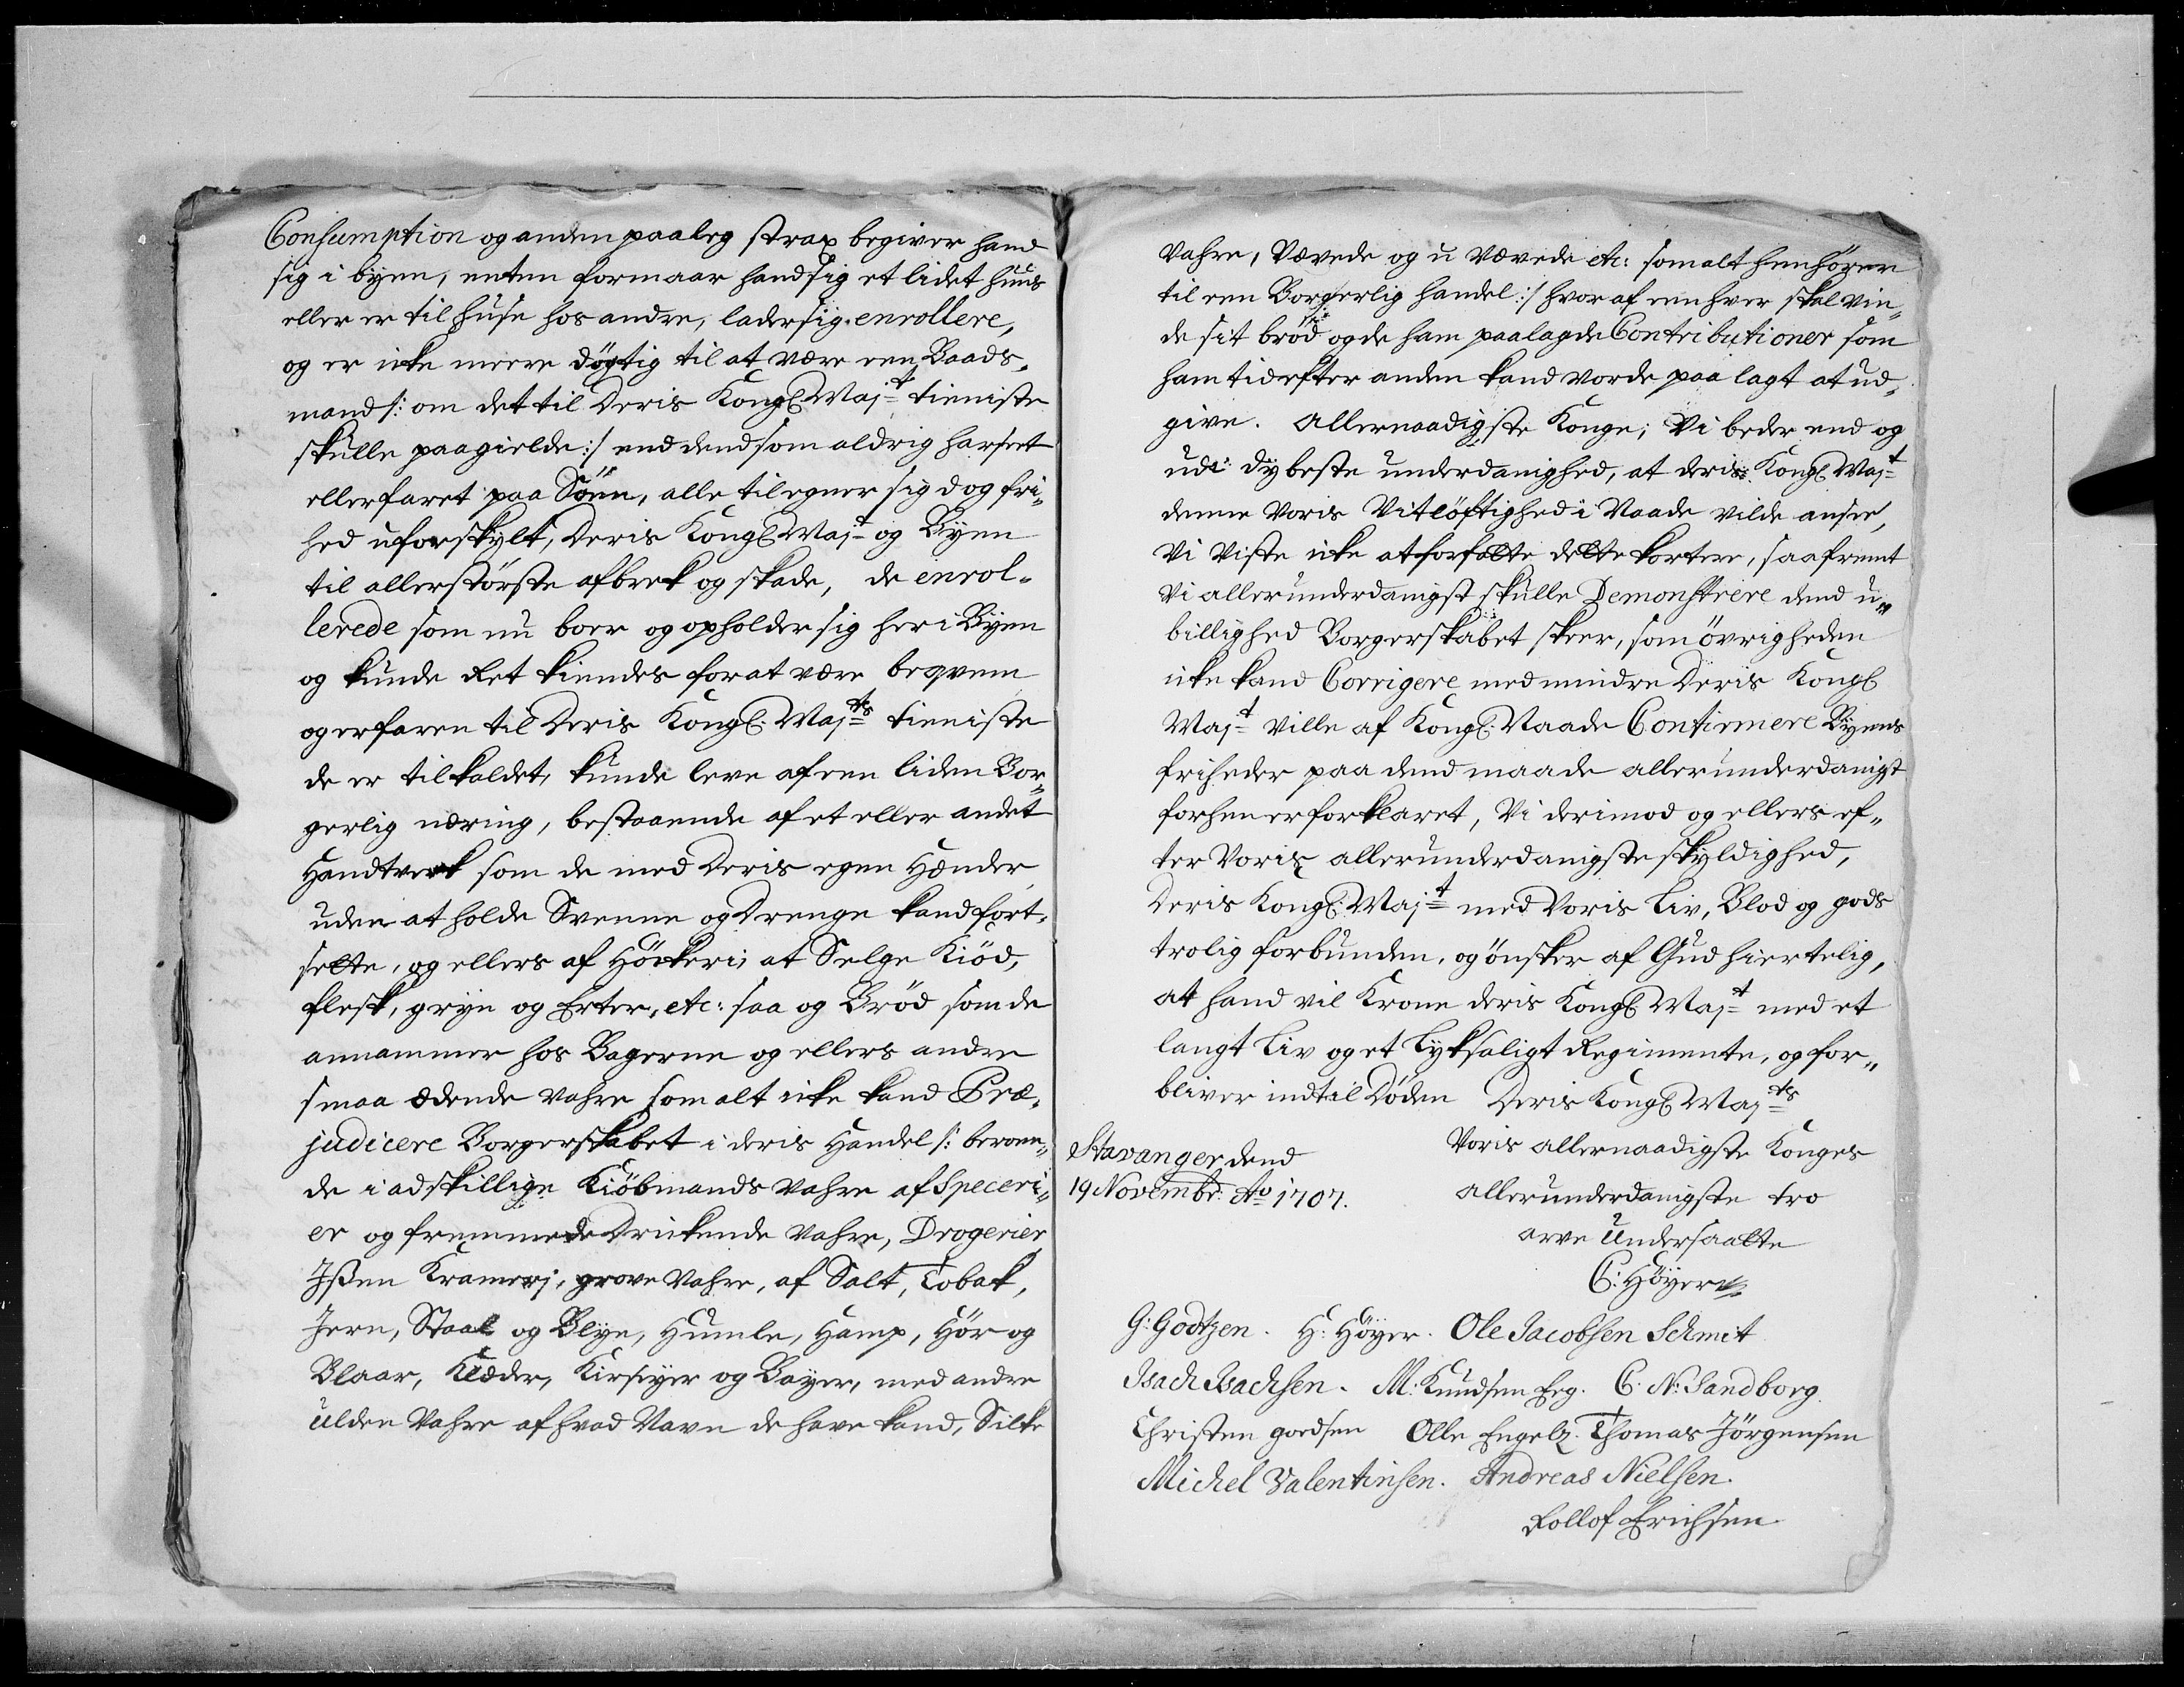 Consumption og anden paaleg strax begiver hand
sig i byen, enten formaar hand sig et lidet huus
eller er til huse hos andre, lader sig enrollere,
og er icke meere døgtig til at være een Baads-
mand /: om det til Deris Kongl: Maj:t tieniste
skulle paagielde :/ end dend som aldrig har seet
eller faret paa Søen, alle tilegner sig dog fri„
hed uforskylt, Deris Kongl: Maj:t og Byen
til allerstørste afbrek og skade, de enrol-
lerede som nu boer og opholder sig her i Byen
og kunde Ret kiendes for at være beqvem
og erfaren til Deris Kongl: Maj:ts tieniste
de er til kaldet, kunde leve af een liden Bor„
gerlig næring, bestaaende af et eller andet
Handtverk som de med Deris egen Hænder
uden at holde Svenne og Drenge kand fort-
sette, og ellers af Høckeri, at Selge Kiød,
flesk, gryn og Erter, etc: saa og Brød som de
annammer hos Bagerne og ellers andre
smaa ædende vahre som alt icke kand Præ-
judicere Borgerskabet i deris Handel /: beroen„
de i adskillige Kiøbmands vahre af Speceri„
er og fremmede Drickende vahre, Drogerier
Ißen Krameri, grove vahre, af Salt, Tobak,
Jern, Staal og Blye, Humle, Hamp, Hør og
Blaar, Klæder, Kirseyer og Bayer, med andre
ulden Vahre af hvad Navn de have kand, Silke
Vahre, Vævede og u Vævede etc: som alt henhører
til een Borgerlig handel :/ hvor af een hver skal vin„
de sit brød og de ham paalagde Contributioner som
ham tid efter anden kand vorde paa lagt at ud„
give. Allernaadigste Konge; Vi beder end og
udi dybeste underdanighed, at deris Kongl: Maj:t
denne voris Vitløftighed i Naade vilde ansee,
Vi viste icke at forfatte dette kortere, saafremt
Vi allerunderdanigst skulle Demonstrere dend u„
billighed Borgerskabet skeer, som øvrigheden
icke kand Corrigere med mindre Deris Kongl
Maj:t ville af Kongl: Naade Confirmere Byens
friheder paa dend maade allerunderdanigt
forhen er forklaret, Vi derimod og ellers ef„
ter voris allerunderdanigste skyldighed,
Deris Kongl: Maj:t med voris Liv, Blod og gods
trolig forbunden, og ønsker af Gud hiertelig,
at hand vil Krone deris Kongl: Maj:t med et
langt Liv og et Lyksaligt Regimente, og for„
bliver indtil Døden Deris Kongl: Maj:ts
Stavanger dend Voris allernaadigste Konges
19 Novembr: Ao 1707. allerunderdanigste tro
arve undersaatte
C: Høyer
G: Godtzen. H: Høyer. Ole Jacobsen Schmit
Isach Isachsen. M: Knudsen Eeg. C: N: Sandborg
Christen goedsen Olle Engelß. Thomas Jørgensen
Michel Valentinsen. Andreas Nielsen.
Rollof Erichsen